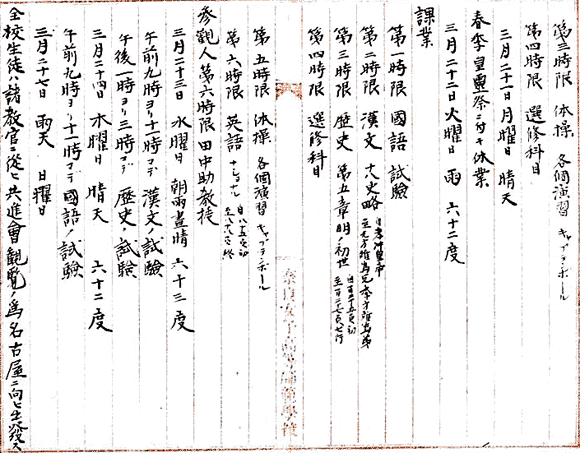 第三時限 体操 各個演習 キャプテンボール
第四時限 選修科目
三月二十一日 月曜日 晴天
春季皇靈祭ニ付キ休業
三月二十二日 火曜日 雨 六十二度
課業
第一時限 國語 試驗
第二時限 漢文 十八史略
第三時限 歴史 第五章 明ノ初世
第四時限 選修科目
奈良女子高等師範學校
第五時限 体操 各個演習 キャプテンボール
第六時限 英語
参觀人 第六時限 田中助教授
三月二十三日 水曜日 朝雨晝晴 六十三度
午前九時ヨリ十一時マデ 漢文ノ試驗
午後一時ヨリ三時マデ 歴史ノ試驗
三月二十四日 木曜日 晴天 六十二度
午前九時ヨリ十一時マデ國語ノ試驗
三月二十七日 雨天 日曜日
全校生徒ハ諸教官ニ從ヒ共進會觀覽ノ爲名古屋ニ向ヒ出發ス